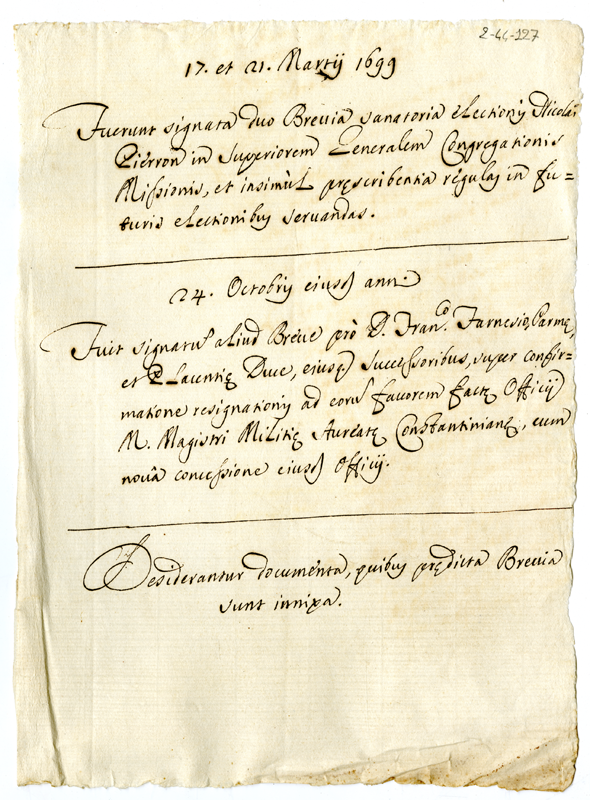 2-44-127
17. et 21. Martij 1699
Fuerunt signata duo Brevia sanatoria electionis Nicolai
Pierron in Superiorem Generalem Congregationis
Missionis, et insimul pręscribentia regulas in fu=
turis electionibus servandas.
24. Octobris eiusd. ann.
Fuit signatū aliud Breve pro D. Franco. Farnesio, Parmę,
et Placentię Duce, eiusq Successoribus, super confir=
matione resignationis ad eorū favorem factę Officij
M. Magistri Militię Auratę Constantinianę, cum
nova concessione eiusd Officij.
Desiderantur documenta, quibus prędicta Brevia
sunt innixa.